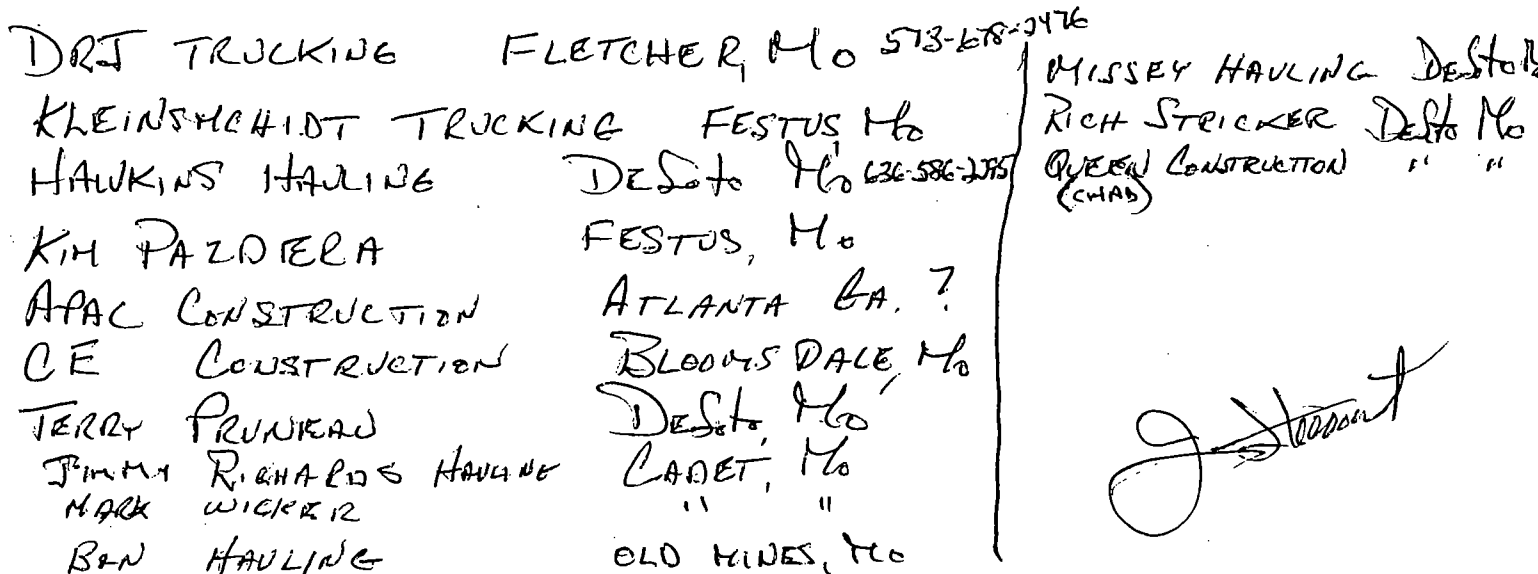 DRJ TRUCKING FLETCHER, Mo 573-678-2476
KLEINSMCHIDT TRUCKING FESTUS, Mo
HAWKINS HAULING DESoto Mo 636-586-2795
KIM PAZDERA FESTUS, Mo
APAC CONSTRUCTION ATLANTA GA. ?
CE CONSTRUCTION BLOOMSDALE, Mo
TERRY PRUNEAU DESoto, Mo
JIMMY RICHARDS HAULING CADET, Mo
MARK WICKER " "
HAULING OLD MINES, Mo
MISSEY HAULING DeSoto
RICH STRICKER DeSoto Mo
QUEEN CONSTRUCTION " "
(CHAD)